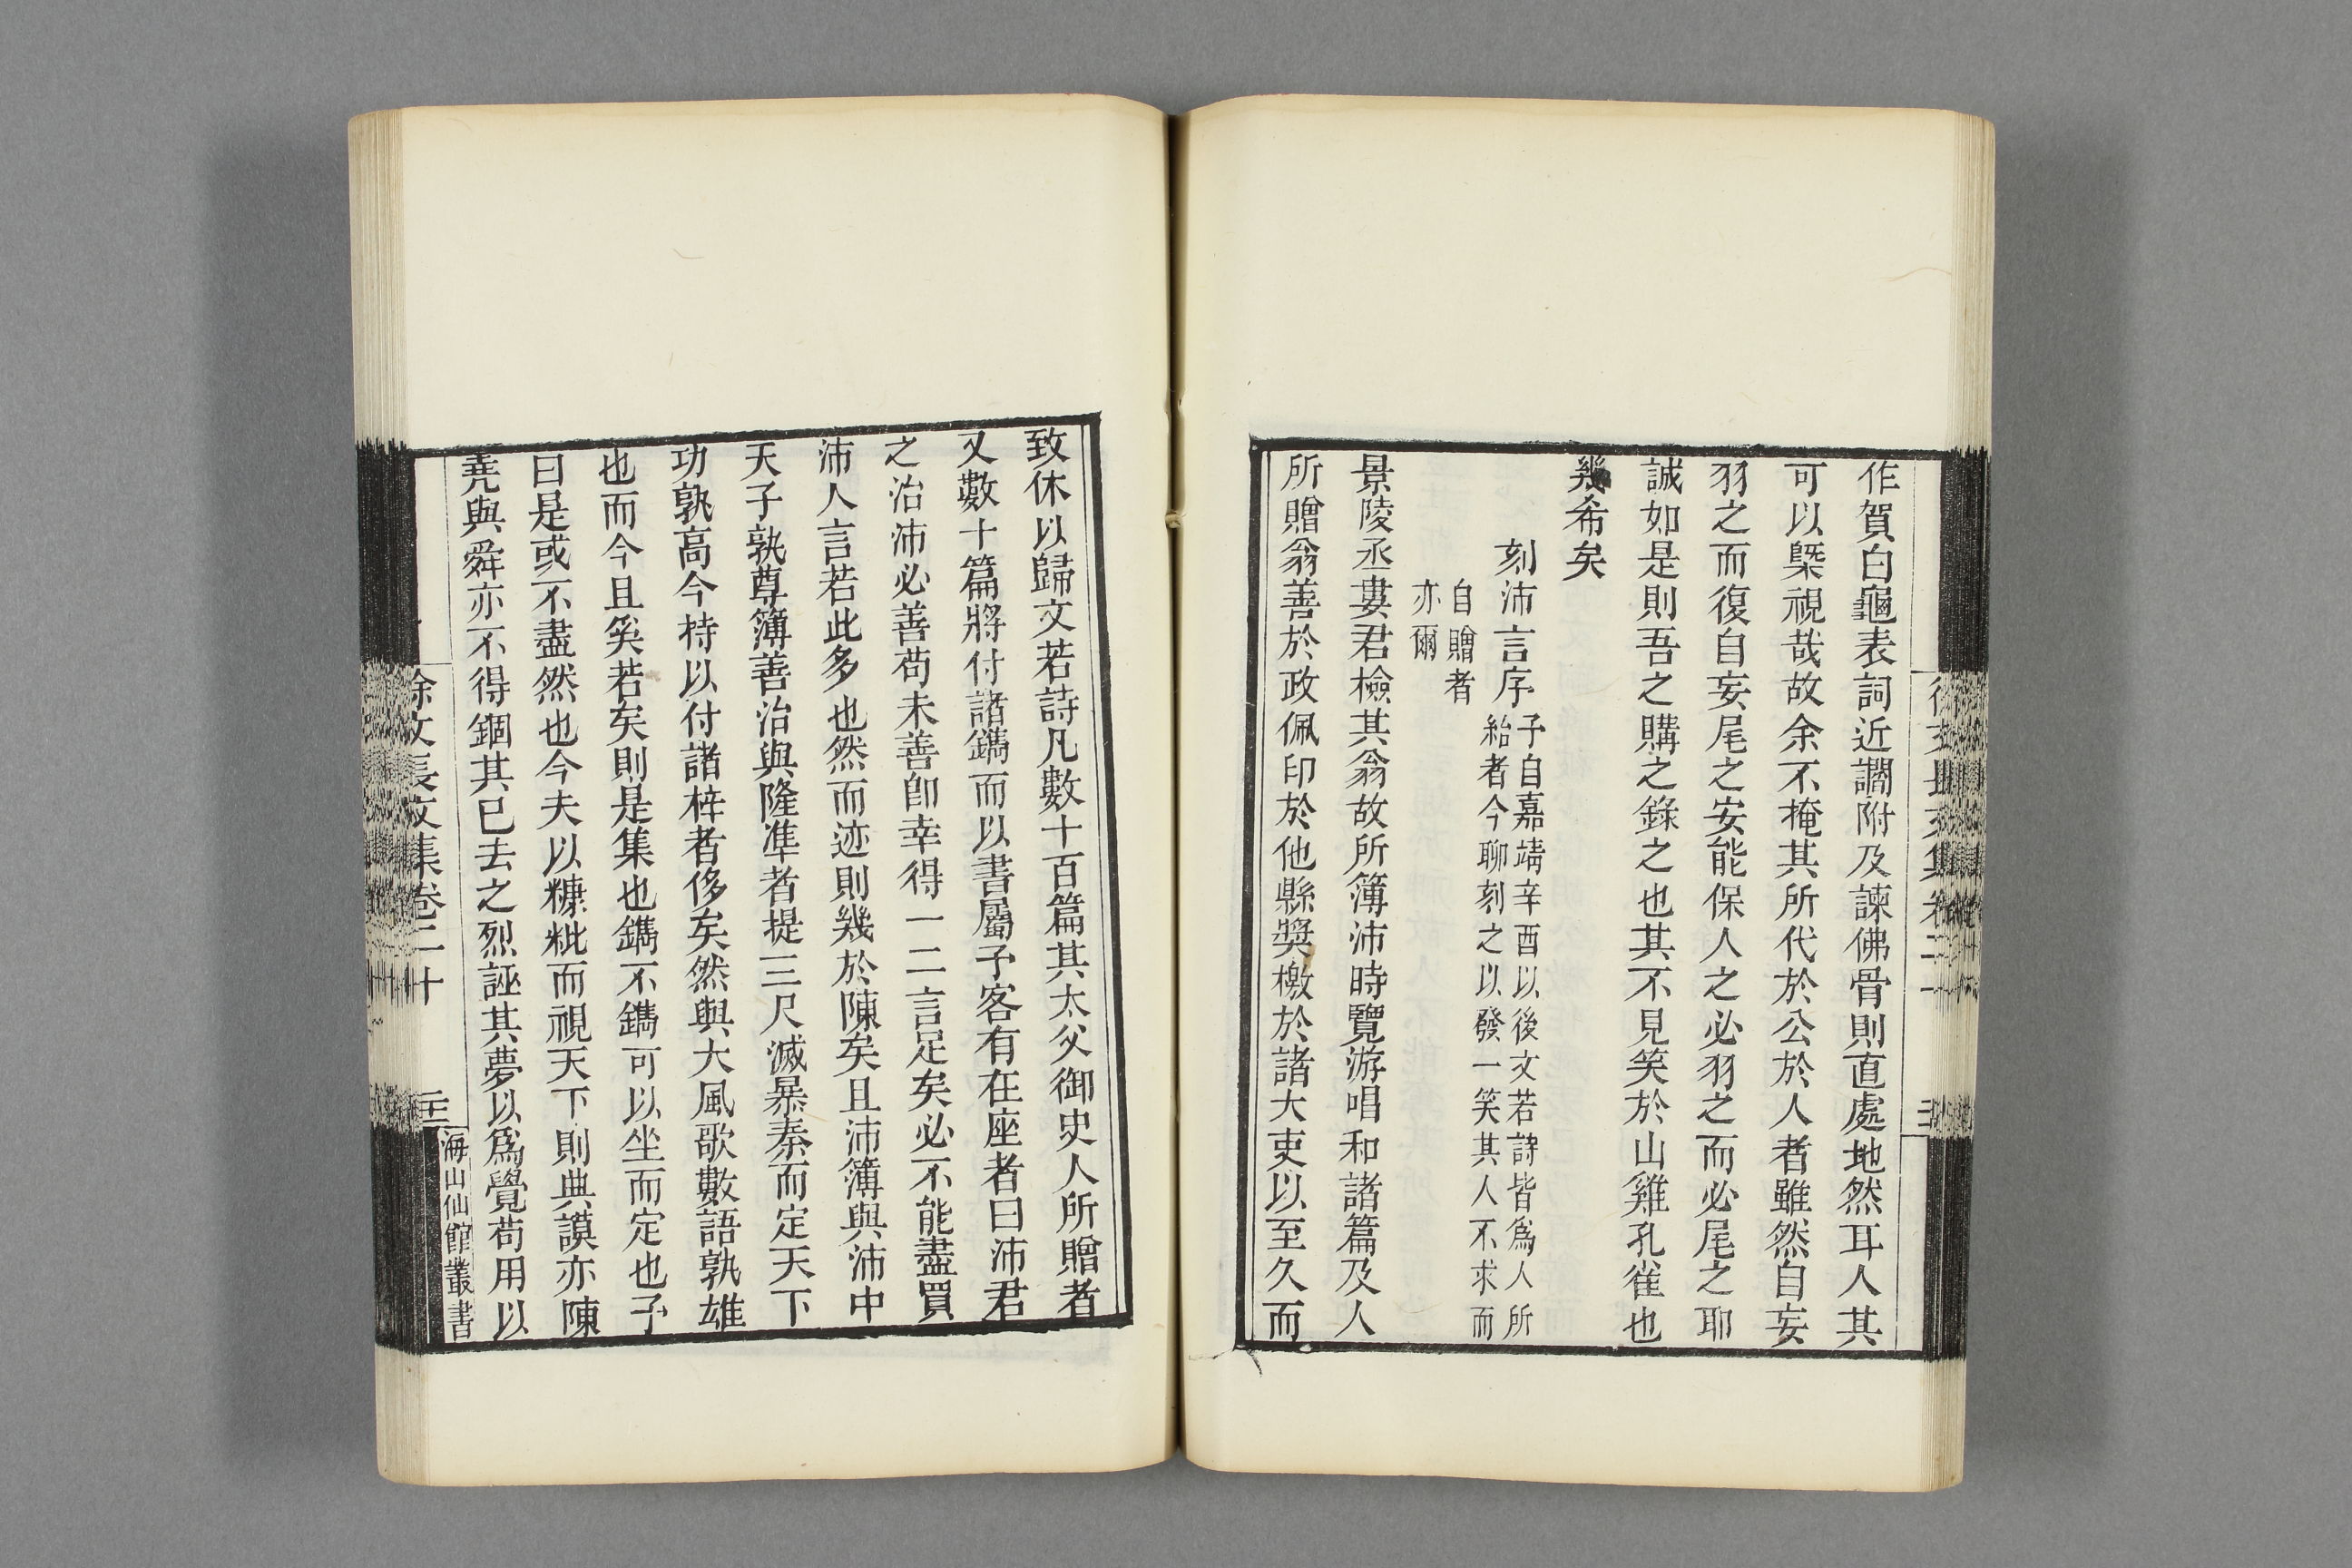 作賀白龜表詞近讇附及諫佛骨則直處地然耳人其
可以槩視哉故余不掩其所代於公於人者雖然自妄
羽之而復自妄尾之安能保人之必羽之而必尾之耶
誠如是則吾之購之錄之也其不見笑於山雞孔雀也
幾希矣
刻沛言序
予自嘉靖辛酉以後文若詩皆爲人所
紿者今聊刻之以發一笑其人不求而
自贈者
亦爾
景陵丞婁君檢其翁故所簿沛時覽游唱和諸篇及人
所贈翁善於政佩印於他縣奬檄於諸大吏以至久而
致休以歸文若詩凡數十百篇其太父御史人所贈者
又數十篇將付諸鐫而以書屬予客有在座者曰沛君
之治沛必善苟未善卽幸得一二言足矣必不能盡買
沛人言若此多也然而迹則幾於陳矣且沛簿與沛中
天子孰尊簿善治與隆準者提三尺滅暴秦而定天下
功孰高今持以付諸梓者侈矣然與大風歌數語孰雄
也而今且奚若矣則是集也鐫不鐫可以坐而定也予
曰是或不盡然也今夫以糠粃而視天下則典謨亦陳
堯與舜亦不得錮其已去之烈誣其夢以爲覺苟用以
徐文長文集卷二十
海山仙館叢書